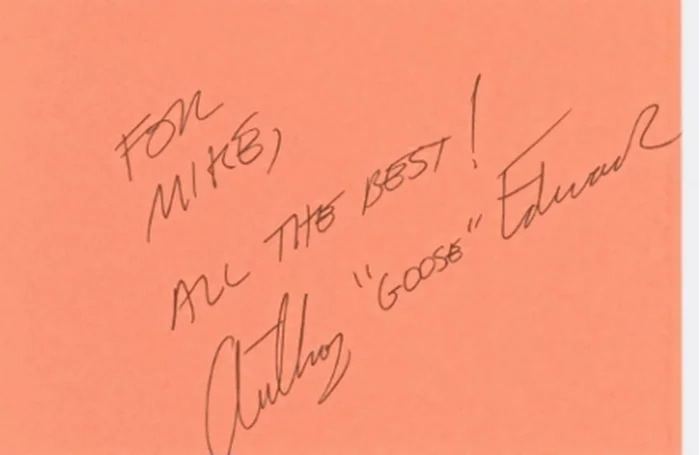 FOR
MIKE,
ALL THE BEST!
Anthony "GOOSE" Edwards